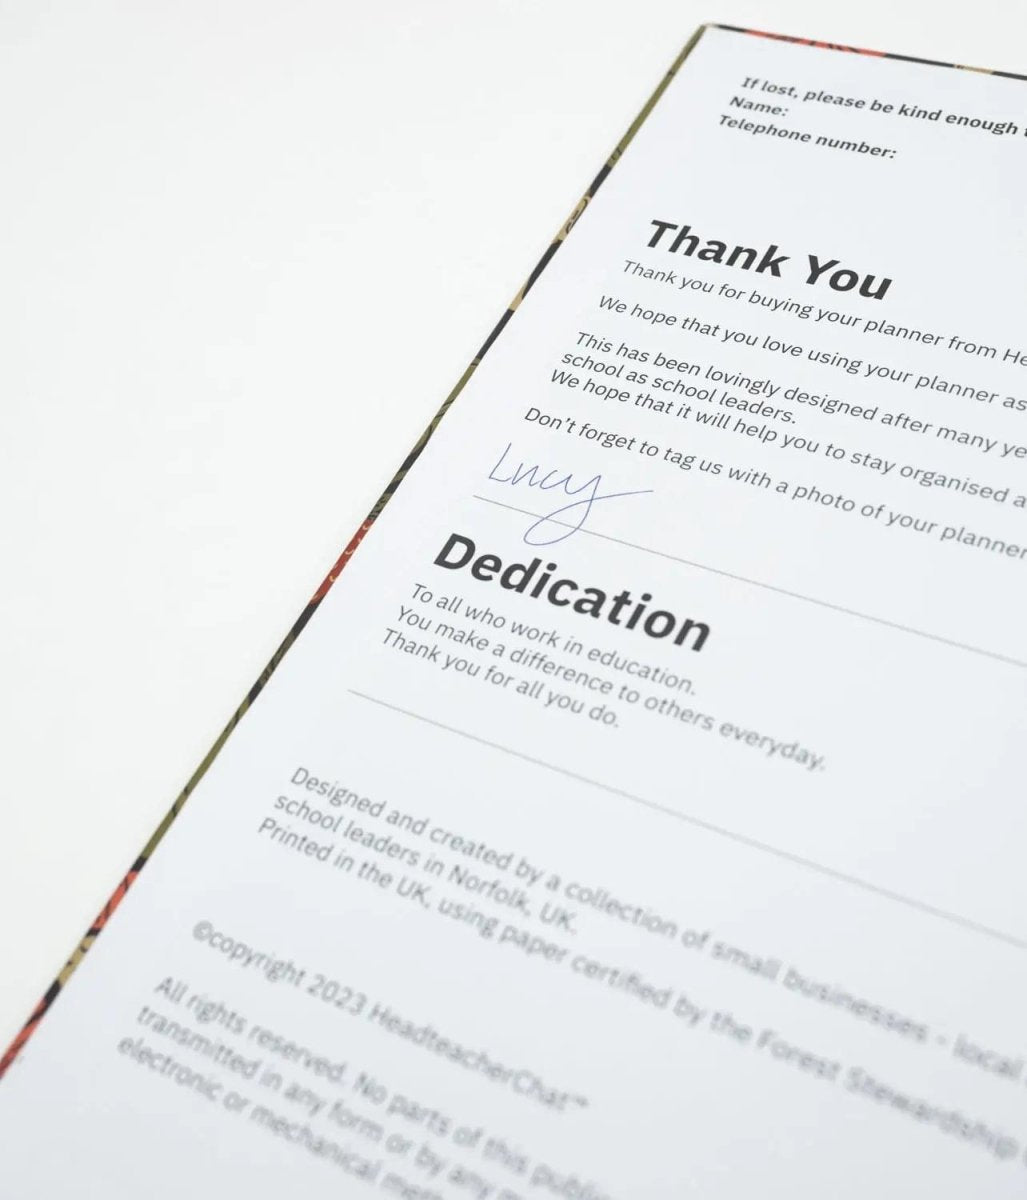 If lost, please be kind enough
Name:
Telephone number:
Thank You
Thank you for buying your planner from
We hope that you love using your planner as
This has been lovingly designed after many
school as school leaders.
We hope that it will help you to stay organised
Don't forget to tag us with a photo of your planner
Lucy
Dedication
To all who work in education.
You make a difference to others everyday.
Thank you for all you do.
Designed and created by a collection of small businesses - local
school leaders in Norfolk, UK.
Printed in the UK, using paper certified by the Forest Stewardship
©copyright 2023 HeadteacherChat™
All rights reserved. No parts of this
transmitted in any form or by any
electronic or mechanical